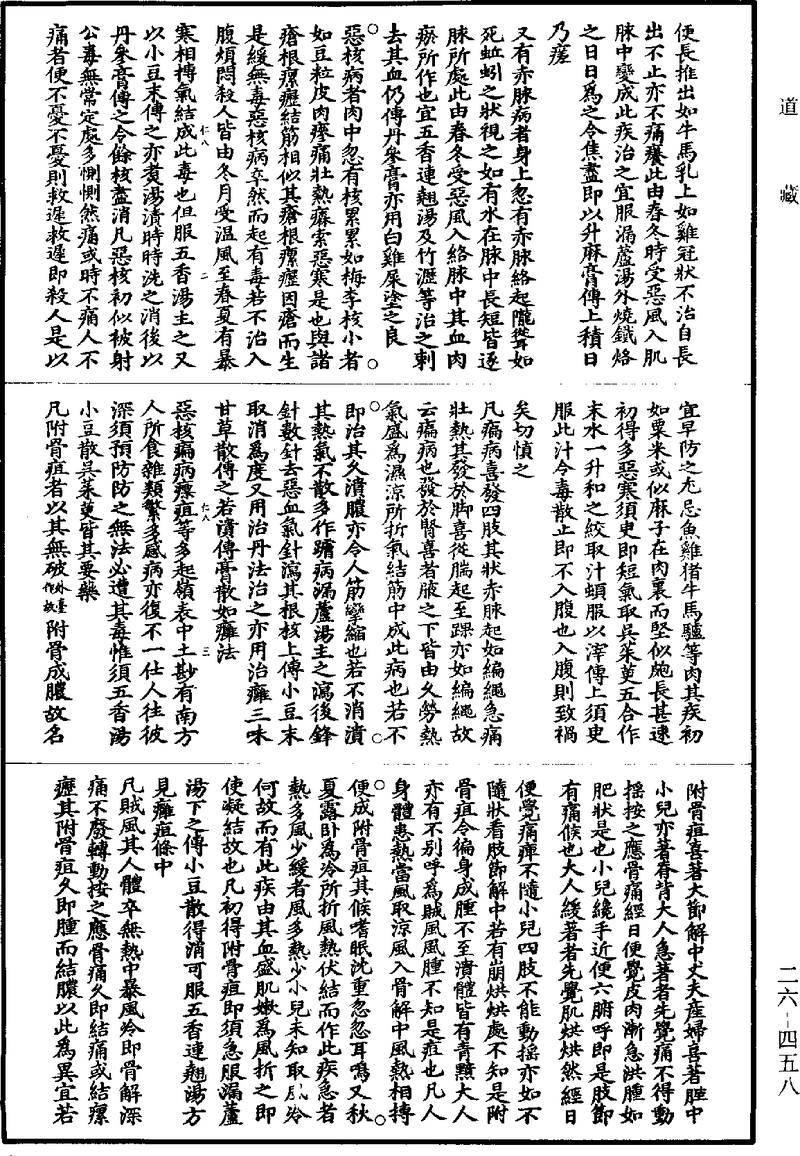 道藏
便長推出如牛馬乳上如雞冠狀不治自長
出不止亦不痛癢此由春冬時受惡風入肌
脉中變成此疾治之宜服漏蘆湯外燒鐵烙
之日日爲之令焦盡即以升麻膏傅上積日
乃瘥
又有赤脉病者身上忽有赤脉絡起隴聳如
死蚯蚓之狀視之如有水在脉中長短皆逐
脉所處此由春冬受惡風入絡脉中其血肉
瘀所作也宜五香連翹湯及竹瀝等治之刺
去其血仍傅丹參膏亦用白雞屎塗之良
惡核病者肉中忽有核累累如梅李核小者
如豆粒皮肉瘮痛壯熱瘮索惡寒是也與諸
瘡根瘰癧結筋相似其瘡根瘰癧因瘡而生
是緩無毒惡核病卒然而起有毒若不治入
腹煩悶殺人皆由冬月受温風至春夏有暴
寒相摶氣結成此毒也但服五香湯主之又
以小豆末傅之亦煮湯漬時時洗之消後以
丹參膏傅之令餘核盡消凡惡核初似被射
公毒無常定處多惻惻然痛或時不痛人不
痛者便不憂不憂則救遲救遲即殺人是以
宜早防之尤忌魚雞猪牛馬驢等肉其疾初
如粟米或似麻子在肉裏而堅似皰長甚速
初得多惡寒須臾即短氣取吳茱萸五合作
末水一升和之絞取汁頓服以滓傅上須臾
服此汁令毒散止即不入腹也入腹則致禍
矣切慎之
凡㾓病喜發四肢其狀赤脉起如編繩急痛
壯熱其發於脚喜從腨起至踝亦如編繩故
云㾓病也發於腎喜著腋之下皆由久勞熱
氣盛爲濕涼所折氣結筋中成此病也若不
即治其久潰膿亦令人筋攣縮也若不消潰
其熱氣不散多作䐔病漏蘆湯主之瀉後鋒
針數針去惡血氣針瀉其根核上傅小豆末
取消爲度又用治丹法治之亦用治癰三味
甘草散傅之若潰傅膏散如癰法
惡核㾓病瘭疽等多起嶺表中土尠有南方
人所食雜類繁多感病亦復不一仕人往彼
深須預防防之無法必遭其毒惟須五香湯
小豆散吳茱萸皆其要藥
凡附骨疽者以其無破外臺作故附骨成膿故名
附骨疽喜著大節解中丈夫産婦喜著䏶中
小兒亦著脊背大人急著者先覺痛不得動
摇按之應骨痛經日便覺皮肉漸急洪腫如
肥狀是也小兒纔手近便大腑呼即是肢節
有痛候也大人緩著者先覺肌烘烘然經日
便覺痛痺不隨小兒四肢不能動摇亦如不
隨狀看肢節解中若有崩烘烘處不知是附
骨疽令徧身成腫不至潰體皆有青黯大人
亦有不别呼爲賊風風腫不知是疽也凡人
身體患熱當風取涼風入骨解中風熱相摶
便成附骨疽其候嗜眠沈重忽忽耳鳴又秋
夏露卧爲冷所折風熱伏結而作此疾急者
熱多風少緩者風多熱少小兒未知取風冷
何故而有此疾由其血盛肌嫰爲風折之即
使凝結故也凡初得附骨疽即須急服漏蘆
湯下之傅小豆散得消可服五香連翹湯方
見癰疽條中
凡賊風其人體卒無熱中暴風冷即骨解深
痛不廢轉動按之應骨痛久即結痛或結瘰
癧其附骨疽久即腫而結膿以此爲異宜若
仁八 二
仁八 三
二六–四五八